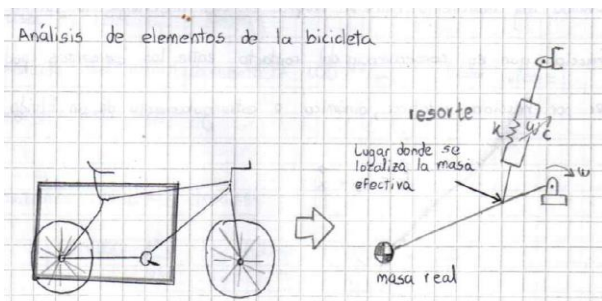 Análisis de elementos de la bicicleta
resorte
k
c
Lugar donde se
localiza la masa
efectiva
w
masa real